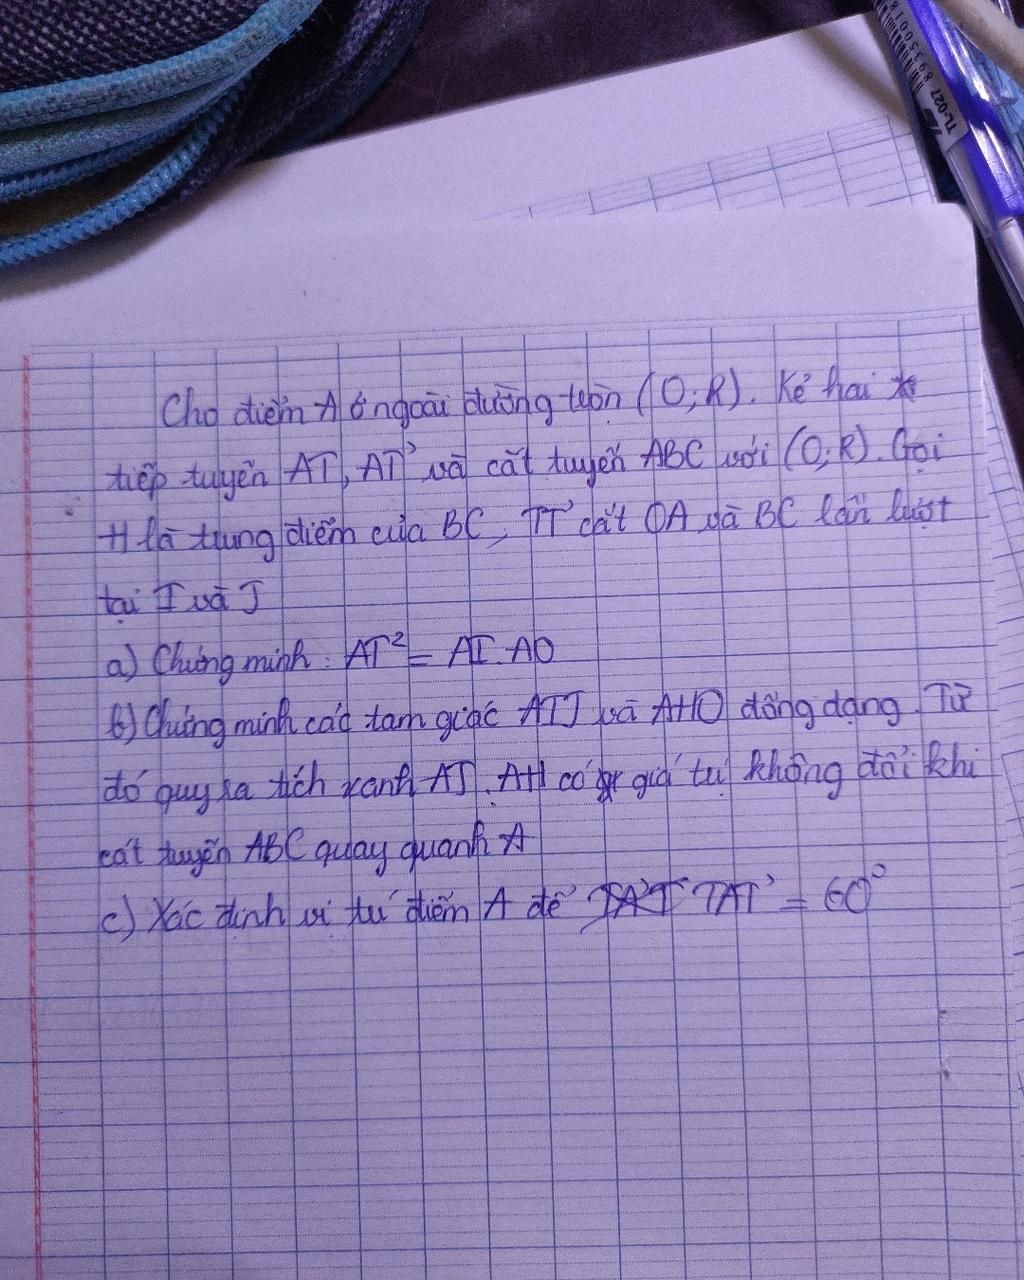 TL-027 893500181
Cho điểm A ở ngoài đường tròn (O; R). Kẻ hai
tiếp tuyến AT, AT' và cát tuyến ABC với (O; R). Gọi
H là trung điểm của BC, TT' cắt OA và BC lần lượt
tại I và J
a) Chứng minh: AT² = AI. AO
b) Chứng minh các tam giác AIJ và AHO đồng dạng. Từ
đó quy ra tích xanh AJ. AH có giá trị không đổi khi
cát tuyến ABC quay quanh A
c) Xác định vị trí điểm A để TAT' = 60°